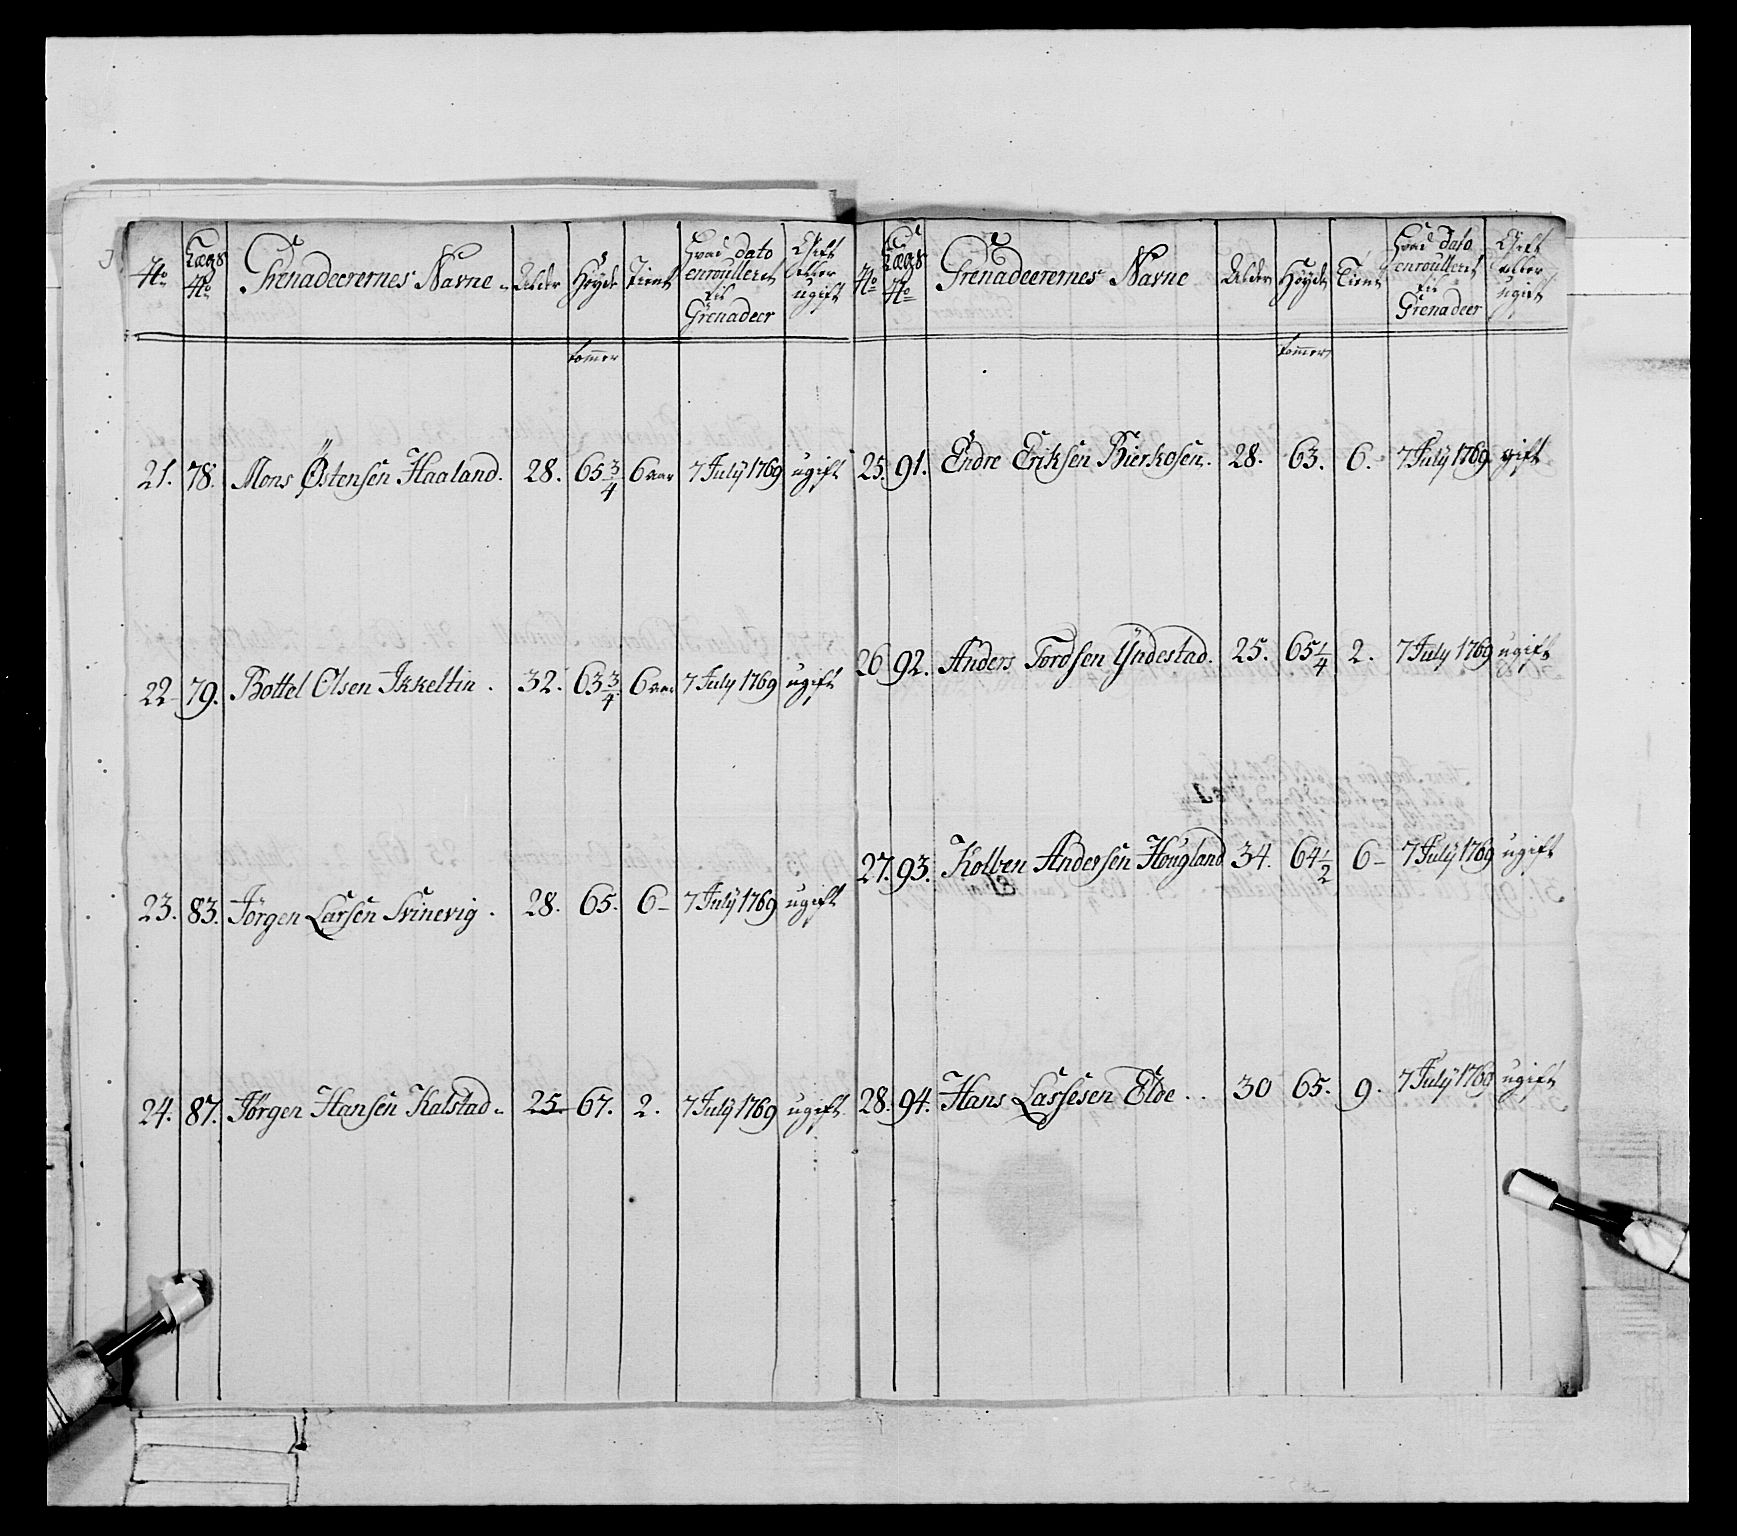 No
Lægs
No
Grenadeerernes Navne
Alder
Høyde
Tient
Hvad dato
enroulleret
til
Grenadeer
Gift
eller
ugift
tommer
21. 78. Mons Østensen Haaland. 28. 65 3/4 6 aar 7 July 1769 ugift
22 79. Bottel Olsen Ikkeltin. 32. 63 3/4 6 aar 7 July 1769 ugift
23. 83. Jørgen Larsen Svinevig. 28. 65. 6 – 7 July 1769 ugift
24. 87. Jørgen Hansen Kalstad 25 67. 2. 7 July 1769 ugift
No
Lægs
No
Grenadeerernes Navne
Alder
Høyde
Tient
Hvad dato
enroulleret
til
Grenadeer
Gift
eller
ugift
tommer
25. 91. Endre Eriksen Bierkosen. 28. 63. 6. 7 July 1769 gift
26 92. Anders Tordsen Yndestad. 25. 65 1/4 2. 7 July 1769 ugift
27. 93. Kolben Andersen Hougland 34. 64 1/2 6 – 7 July 1769 ugift
28. 94. Hans Lassesen Elde.. 30 65. 9. 7 July 1769 ugift